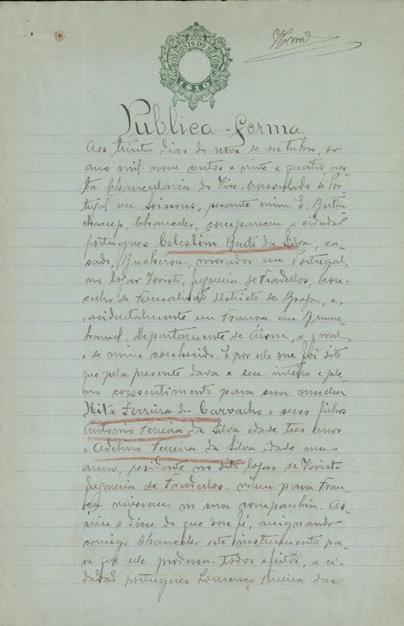 Publica-forma
Aos trinta dias do mez de outubro, do
anno mil nove centos e vinte e quatro, nes
ta Chancellaria do Vice-Consulado de Por
tugal em Soissons, perante mim E. Bertin
champ, Chanceler, compareceu o cidadão
portuguez Celestino Bento da Silva, ca-
sado, morador em Portugal
no logar Souto, freguezia de Fradellos, con-
celho de Famalicão districto de Braga, e,
acidentalmente em França em
Departamento de Aisne,
e de mim conhecido. E por ele me foi dito
que pela presente dava o seu inteiro e ple-
no consentimento para sua mulher
Rita Ferreira de Carvalho e seus filhos
Antonio Pereira da Silva edade tres annos
e Adelino Pereira da Silva idade um
anno, residente no dito logar de Souto
freguezia de Fradellos. virem para Fran-
ça viverem na sua companhia. As-
sim o disse do que dou fé, assignando
comigo Chanceler este instrumento pa-
ra que ele produza todos efeitos, o ci-
dadão portuguez Lourenço Pereira dos